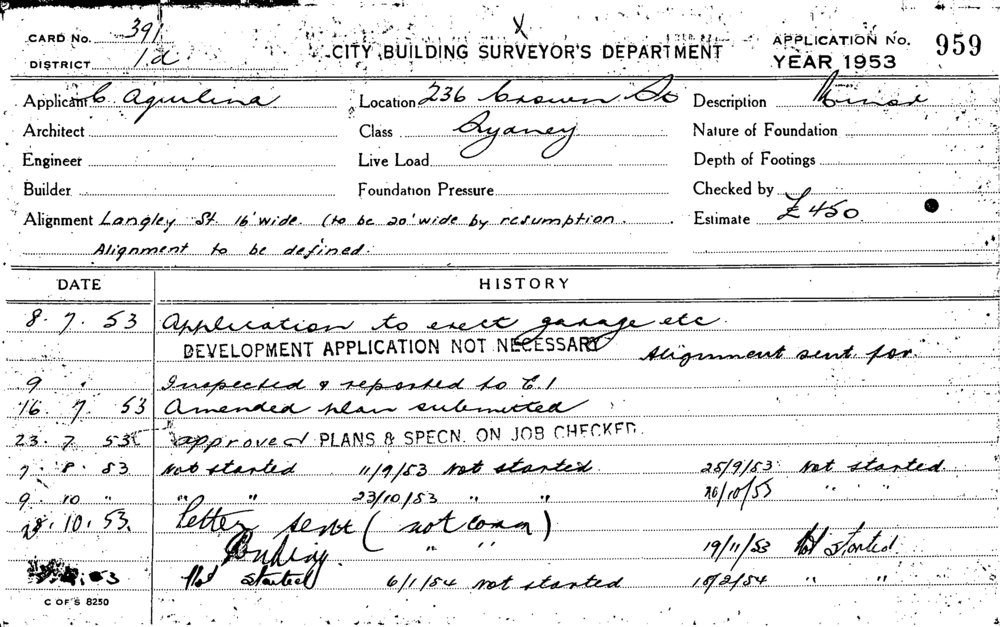 CARD No. 391
DISTRICT 1a
CITY BUILDING SURVEYOR'S DEPARTMENT
APPLICATION No. 959
YEAR 1953
Applicant C. Aquilina Location 236 Crown St Description Minor
Architect Class Sydney Nature of Foundation
Engineer Live Load Depth of Footings
Builder Foundation Pressure Checked by
Alignment Langley St. 16' wide. (to be 20' wide by resumption. Estimate £450
Alignment to be defined.
DATE HISTORY
8. 7. 53 Application to erect garage etc.
DEVELOPMENT APPLICATION NOT NECESSARY Alignment sent for
9 . Inspected & reported to E.1
16. 7. 53 Amended plan submitted
23. 7 53 approved PLANS & SPECN. ON JOB CHECKED.
7. 8. 53 Not started 11/9/53 Not started. 25/9/53 Not started.
9. 10 " " " 23/10/53 " " 26/10/53 " "
28. 10. 53. Letter sent (not comm)
" " 19/11/53 Not started.
53 Not started 6/1/54 Not started 18/2/54 " "
C OF S 8250